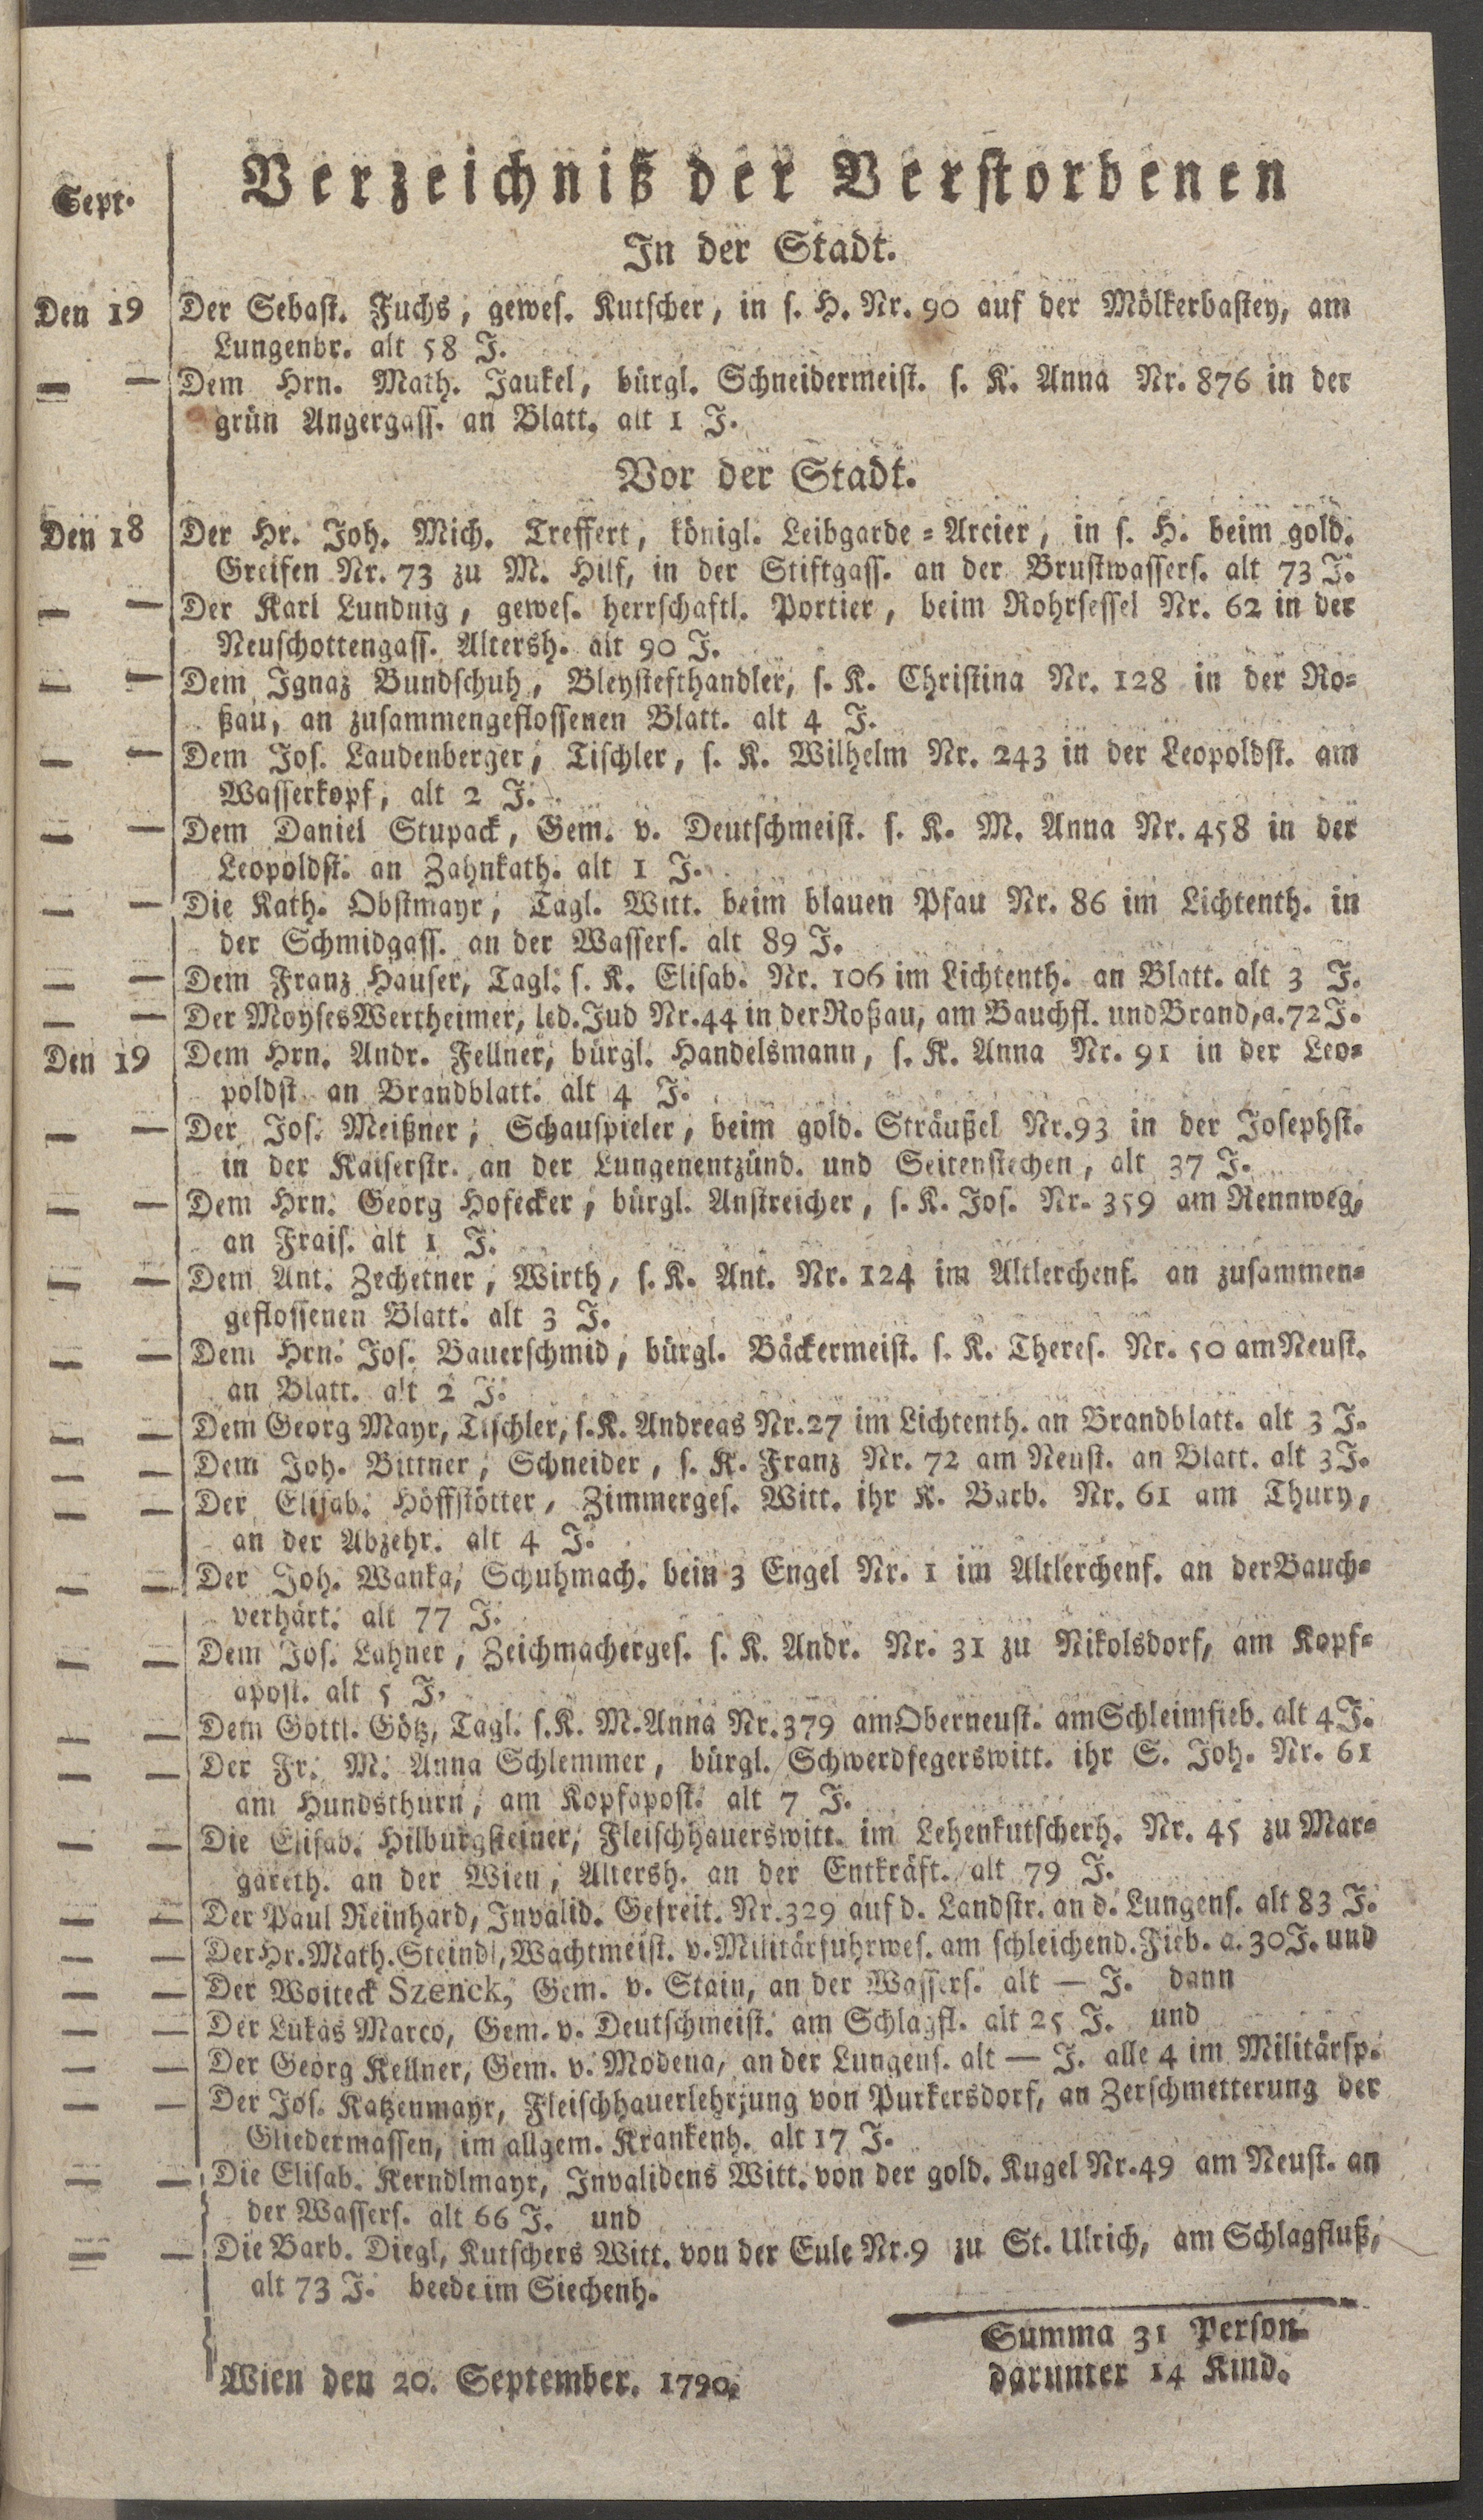 Verzeichniß der Verstorbenen
Sept.
In der Stadt.
Den 19 Der Sebast. Fuchs, gewes. Kutscher, in s. H. Nr. 90 auf der Mölkerbastey, am
Lungenbr. alt 58 J.
— — Dem Hrn. Math. Jaukel, bürgl. Schneidermeist. s. K. Anna Nr. 876 in der
grün Angergass. an Blatt. alt 1 J.
Vor der Stadt.
Den 18 Der Hr. Joh. Mich. Treffert, königl. Leibgarde=Arcier, in s. H. beim gold.
Greifen Nr. 73 zu M. Hilf, in der Stiftgass. an der Brustwassers. alt 73 J.
— — Der Karl Lundnig, gewes. herrschaftl. Portier, beim Rohrsessel Nr. 62 in der
Neuschottengass. Altersh. alt 90 J.
— — Dem Ignaz Bundschuh, Bleystefthandler, s. K. Christina Nr. 128 in der Ro=
ßau, an zusammengeflossenen Blatt. alt 4 J.
— — Dem Jos. Laudenberger, Tischler, s. K. Wilhelm Nr. 243 in der Leopoldst. am
Wasserkopf, alt 2 J.
— — Dem Daniel Stupack, Gem. v. Deutschmeist. s. K. M. Anna Nr. 458 in der
Leopoldst. an Zahnkath. alt 1 J.
— — Die Kath. Obstmayr, Tagl. Witt. beim blauen Pfau Nr. 86 im Lichtenth. in
der Schmidgass. an der Wassers. alt 89 J.
— — Dem Franz Hauser, Tagl. s. K. Elisab. Nr. 106 im Lichtenth. an Blatt. alt 3 J.
— — Der Moyses Wertheimer, led. Jud Nr. 44 in der Roßau, am Bauchfl. und Brand, a. 72 J.
Den 19 Dem Hrn. Andr. Fellner, bürgl. Handelsmann, s. K. Anna Nr. 91 in der Leo=
poldst an Brandblatt. alt 4 J.
— — Der Jos. Meißner, Schauspieler, beim gold. Sträußel Nr. 93 in der Josephst.
in der Kaiserstr. an der Lungenentzünd. und Seitenstechen, alt 37 J.
— — Dem Hrn. Georg Hofecker, bürgl. Anstreicher, s. K. Jos. Nr. 359 am Rennweg,
an Frais. alt 1 J.
— — Dem Ant. Zechetner, Wirth, s. K. Ant. Nr. 124 im Altlerchenf. an zusammen=
geflossenen Blatt. alt 3 J.
— — Dem Hrn. Jos. Bauerschmid, bürgl. Bäckermeist. s. K. Theres. Nr. 50 am Neust.
an Blatt. alt 2 J.
— — Dem Georg Mayr, Tischler, s. K. Andreas Nr. 27 im Lichtenth. an Brandblatt. alt 3 J.
— — Dem Joh. Bittner, Schneider, s. K. Franz Nr. 72 am Neust. an Blatt. alt 3 J.
— — Der Elisab. Höffstötter, Zimmerges. Witt. ihr K. Barb. Nr. 61 am Thury,
an der Abzehr. alt 4 J.
— — Der Joh. Wanka, Schuhmach. bein 3 Engel Nr. 1 im Altlerchenf. an der Bauch=
verhärt. alt 77 J.
— — Dem Jos. Lahner, Zeichmacherges. s. K. Andr. Nr. 31 zu Nikolsdorf, am Kopf=
apost. alt 5 J.
— — Dem Gottl. Götz, Tagl. s. K. M. Anna Nr. 379 am Oberneust. am Schleimfieb. alt 4 J.
— — Der Fr. M. Anna Schlemmer, bürgl. Schwerdfegerswitt. ihr S. Joh. Nr. 61
am Hundsthurn, am Kopfapost. alt 7 J.
— — Die Elisab. Hilburgsteiner, Fleischhauerswitt. im Lehenkutscherh. Nr. 45 zu Mar=
gareth. an der Wien, Altersh. an der Entkräft. alt 79 J.
— — Der Paul Reinhard, Invalid. Gefreit. Nr. 329 auf d. Landstr. an d. Lungens. alt 83 J.
— — Der Hr. Math. Steindl, Wachtmeist. v. Militärfuhrwes. am schleichend. Fieb. a. 30 J. und
— — Der Woiteck Szenck, Gem. v. Stain, an der Wassers. alt — J. dann
— — Der Lukas Marco, Gem. v. Deutschmeist. am Schlagfl. alt 25 J. und
— — Der Georg Kellner, Gem. v. Modena, an der Lungens. alt — J. alle 4 im Militärsp.
— — Der Jos. Katzenmayr, Fleischhauerlehrjung von Purkersdorf, an Zerschmetterung der
Gliedermassen, im allgem. Krankenh. alt 17 J.
— — Die Elisab. Kerndlmayr, Invalidens Witt. von der gold. Kugel Nr. 49 am Neust. an
der Wassers. alt 66 J. und
— — Die Barb. Diegl, Kutschers Witt. von der Eule Nr. 9 zu St. Ulrich, am Schlagfluß,
alt 73 J. beede im Siechenh.
Summa 31 Person
darunter 14 Kind.
Wien den 20. September. 1790.